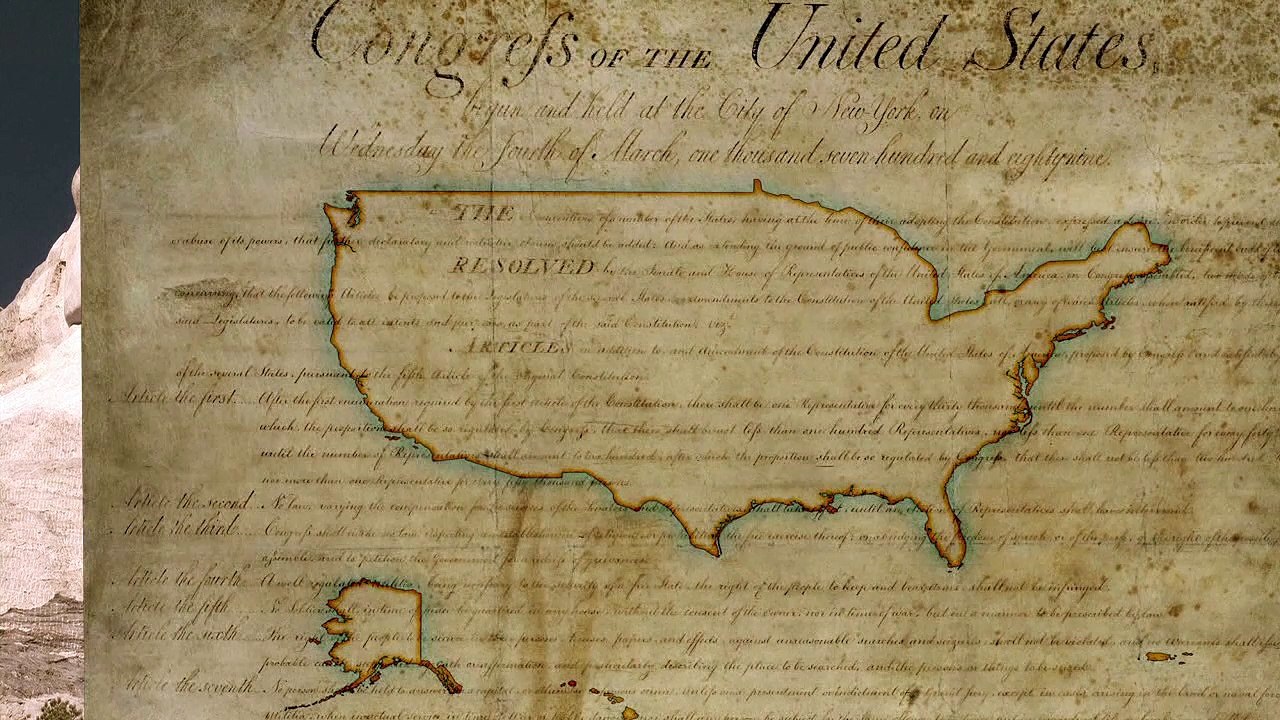 Congreſs OF THE United States,
begun and held at the City of New-York, on
Wednesday the fourth of March, one thousand seven hundred and eighty nine.
THE Conventions of a number of the States, having at the time of their adopting the Constitution, expressed a desire, in order to prevent
or abuse of its powers, that further declaratory and restrictive clauses should be added: And as extending the ground of public confidence in the Government, will best insure the beneficent ends of
RESOLVED by the Senate and House of Representatives of the United States of America, in Congress assembled, two
concurring, that the following Articles be proposed to the Legislatures of the several States, as amendments to the Constitution of the United States, all, or any of which Articles, when ratified by
said Legislatures, to be valid to all intents and purposes, as part of the said Constitution; vizt
ARTICLES in addition to, and Amendment of the Constitution of the United States of America, proposed by Congress, and ratified
of the several States, pursuant to the fifth Article of the original Constitution.
Article the first... After the first enumeration required by the first article of the Constitution, there shall be one Representative for every thirty thousand, until the number shall amount to
which, the proportion shall be so regulated by Congress, that there shall be not less than one hundred Representatives, nor less than one Representative for every forty
until the number of Representatives shall amount to two hundred, after which the proportion shall be so regulated by Congress, that there shall not be less than two hundred
nor more than one Representative for every fifty thousand persons.
Article the second... No law, varying the compensation for the services of the Senators and Representatives, shall take effect, until an election of Representatives shall have intervened.
Article the third... Congress shall make no law respecting an establishment of Religion, or prohibiting the free exercise thereof; or abridging the freedom of speech, or of the press; or the right of the
assemble, and to petition the Government for a redress of grievances.
Article the fourth... A well regulated militia, being necessary to the security of a free State, the right of the people to keep and bear arms, shall not be infringed.
Article the fifth... No Soldier shall, in time of peace be quartered in any house, without the consent of the owner, nor in time of war, but in a manner to be prescribed by law.
Article the sixth... The right of the people to be secure in their persons, houses, papers, and effects, against unreasonable searches and seizures, shall not be violated, and no warrants shall issue
probable cause, supported by oath or affirmation, and particularly describing the place to be searched, and the persons or things to be seized.
Article the seventh... No person shall be held to answer for a capital, or otherwise infamous crime, unless on a presentment or indictment of a Grand jury, except in cases arising in the land or naval
Militia, when in actual service in time of War